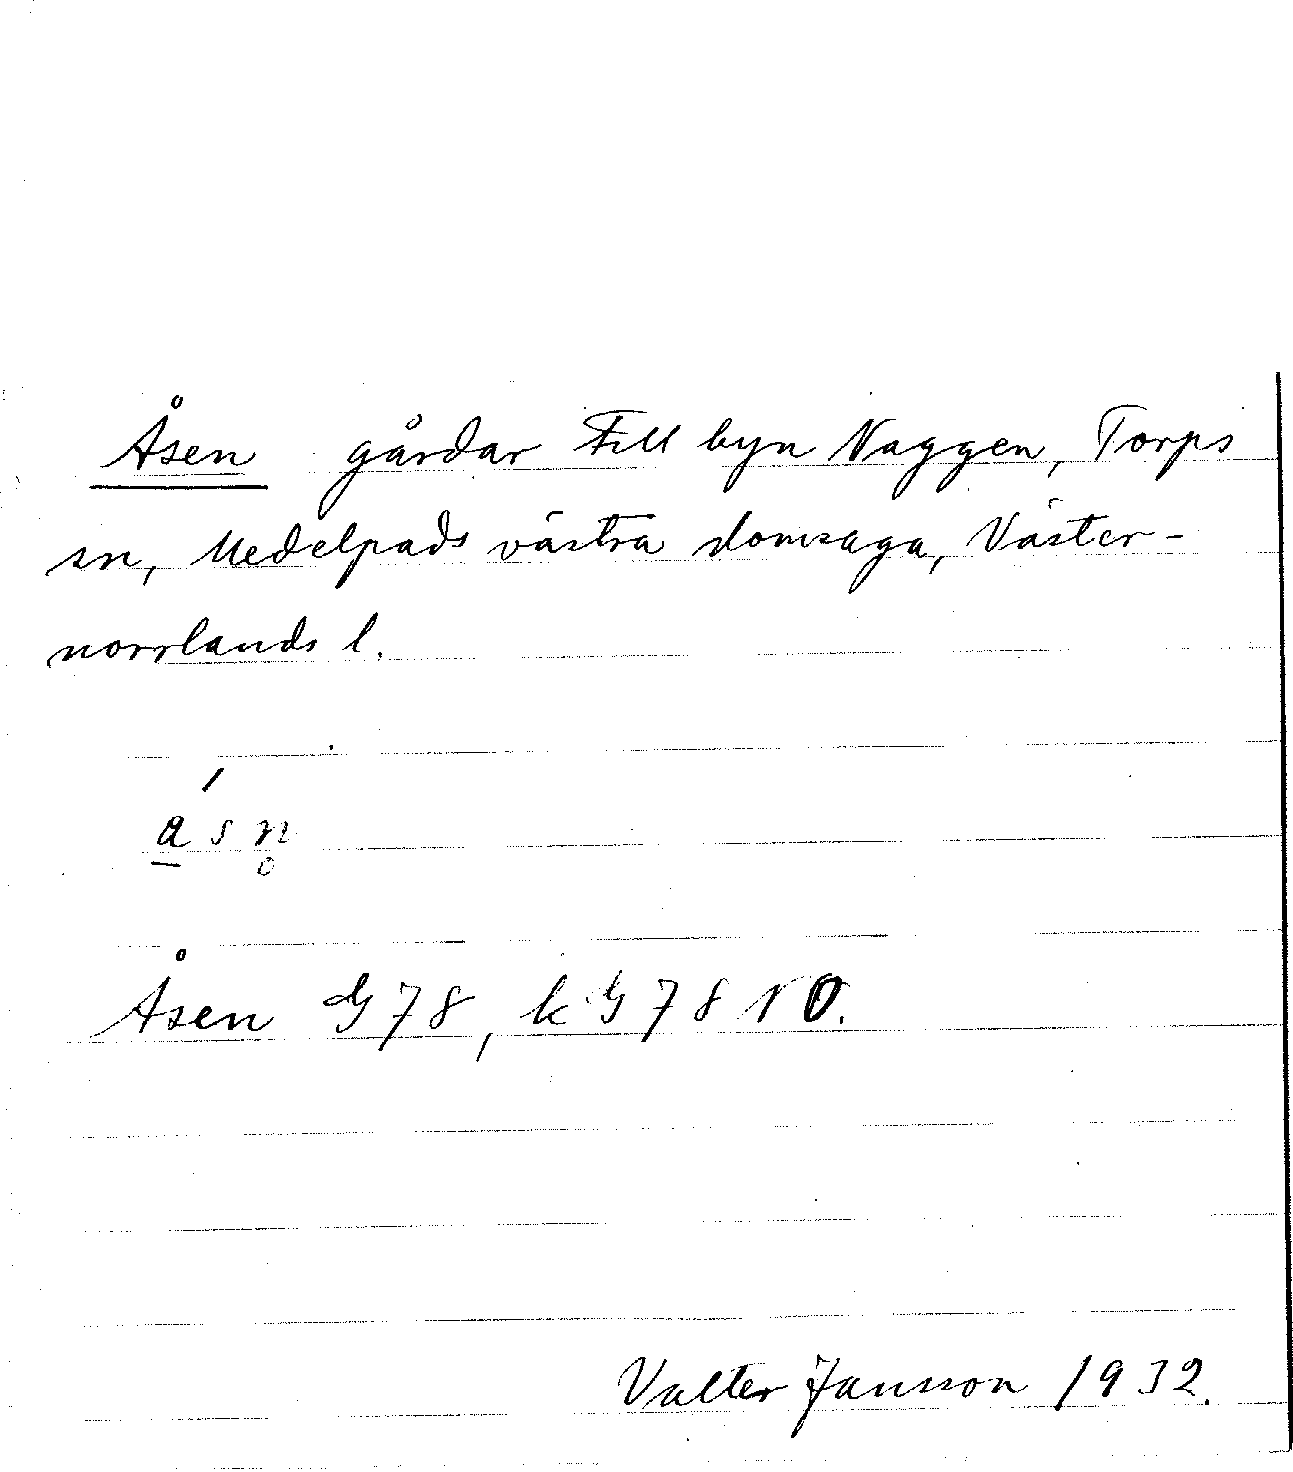 Åsen gårdar till byn Naggen, Torps
sn, Medelpads västra domsaga, Väster-
norrlands l.
á̲ s n̥
Åsen G78, kG78 NO.
Valter Jansson 1932.